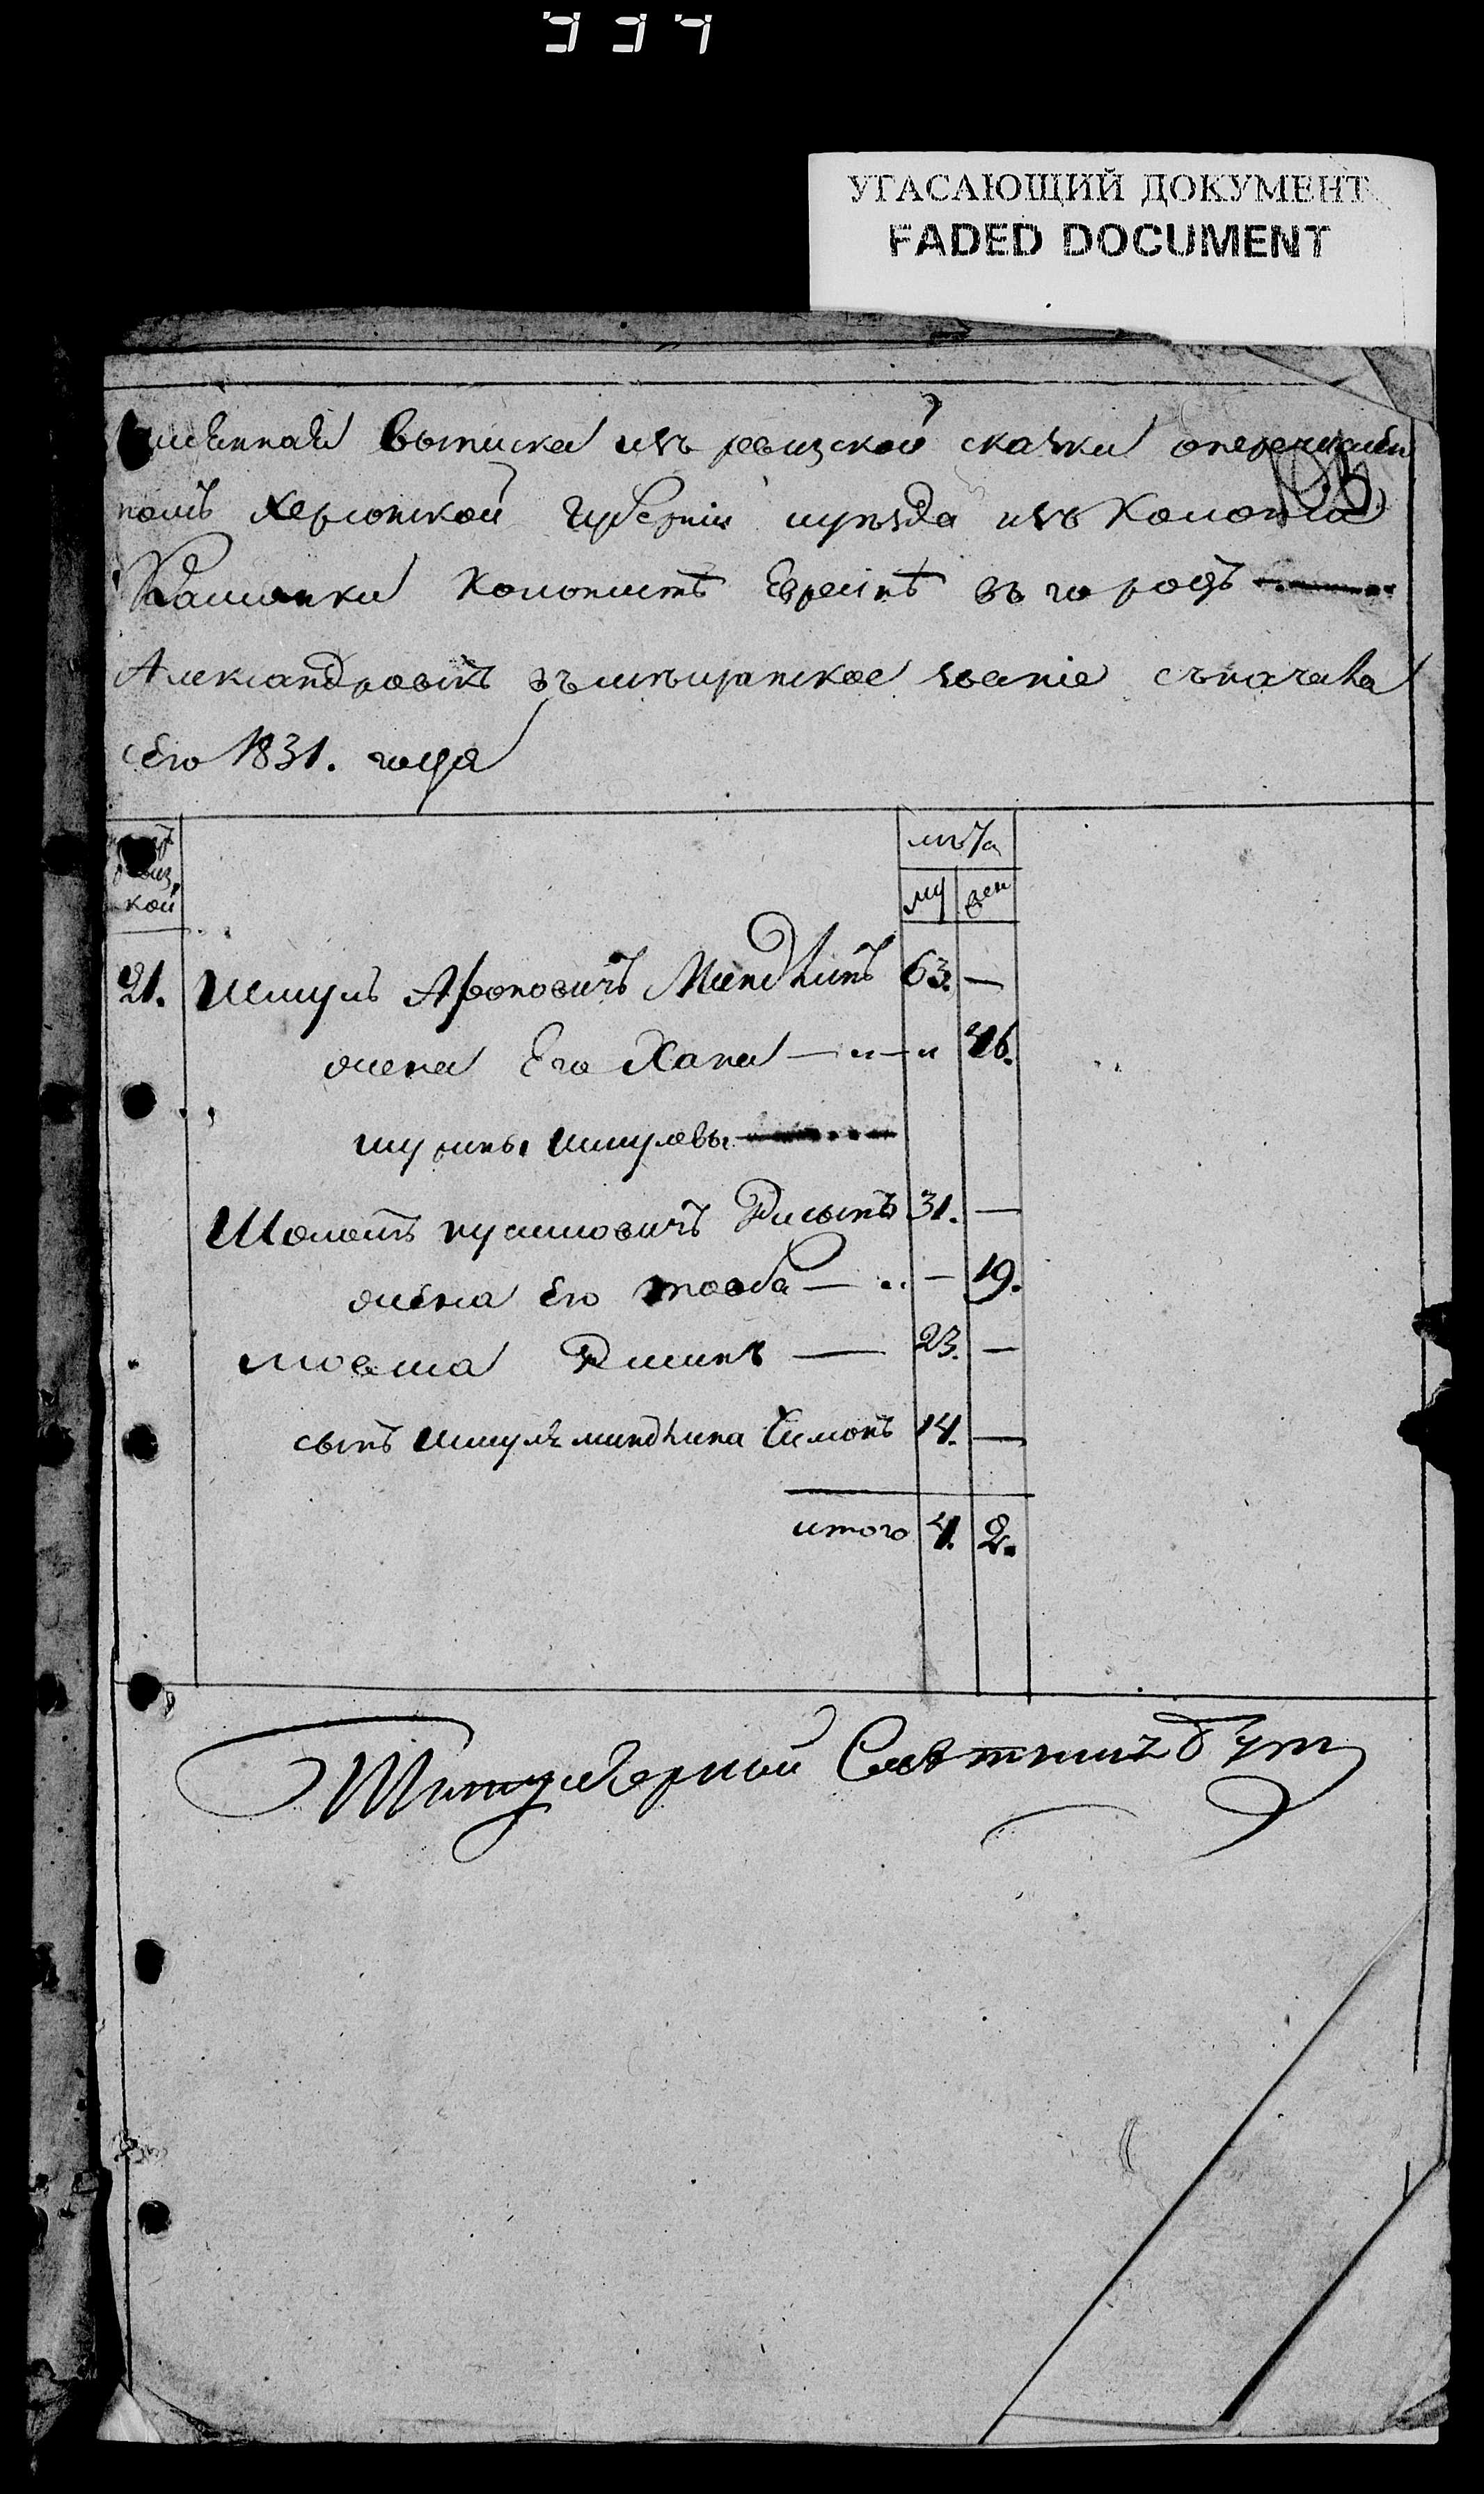 УГАСАЮЩИЙ ДОКУМЕНТ
FADED DOCUMENT
Имѣнная выписка изъ ревизской сказки оперечислен
номъ херсонской губерніи иуѣзда изъ Колоніи
Каминки Колонистѣ Евреинѣ въ городъ
Александровскъ въ мѣщанское званіе съначала
сего 1831. года
ревиз
кой
лѣта
му жен
21. Шмуль Ароновичъ Миндлинъ 63. —
жена Его Хана — „ — „ 46.
шурины Шмулевы
Шоломъ нусимовичъ 31. —
жена Его товба — „ — 19.
мовша — 23. —
сынъ Шмуля миндлина Симонъ 14. —
итого 4. 2.
Титулярный Советникъ